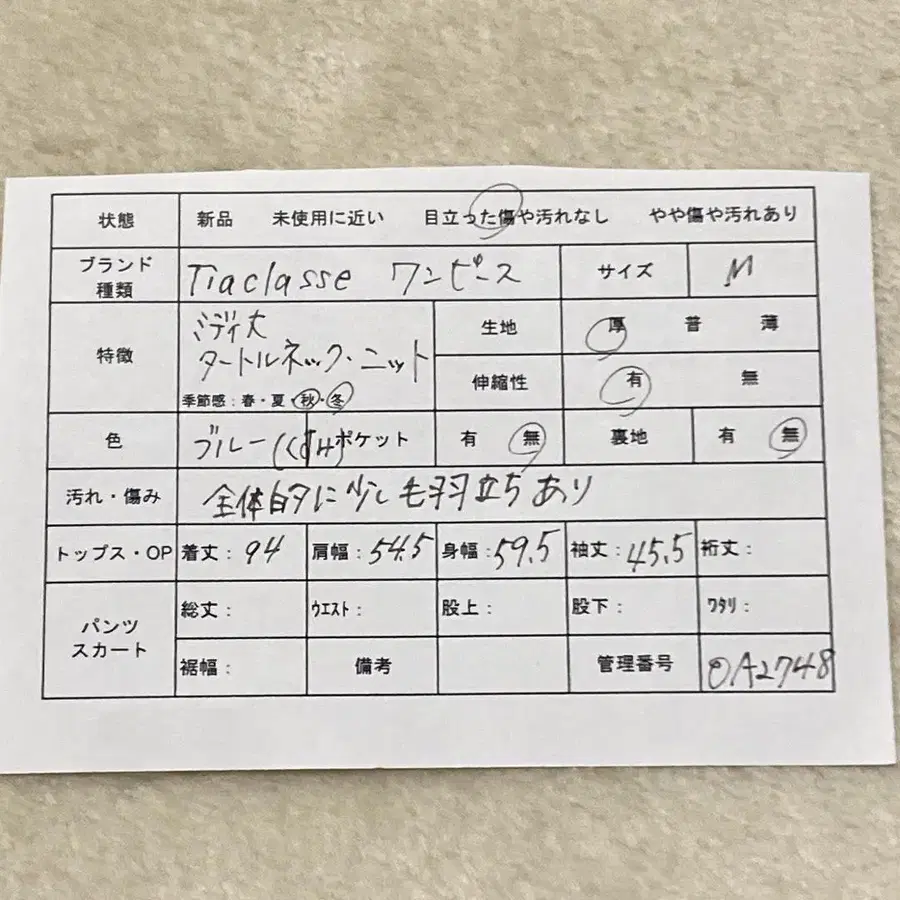 状態 新品 未使用に近い 目立った傷や汚れなし やや傷や汚れあり
ブランド種類 Tiaclasse ワンピース サイズ M
特徴 ミディ丈
タートルネック・ニット
季節感：春・夏・秋・冬
生地 厚 普 薄
伸縮性 有 無
色 ブルー(くすみ) ポケット 有 無 裏地 有 無
汚れ・傷み 全体的に少し毛羽立ちあり
トップス・OP 着丈：94 肩幅：54.5 身幅：59.5 袖丈：45.5 裄丈：
パンツ
スカート
総丈： ウエスト： 股上： 股下： ワタリ：
裾幅： 備考 管理番号 OA2748